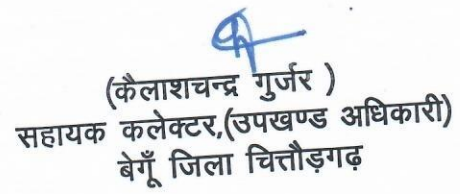 (कैलाशचन्द्र गुर्जर )
सहायक कलेक्टर,(उपखण्ड अधिकारी)
बेगूँ जिला चित्तौड़गढ़